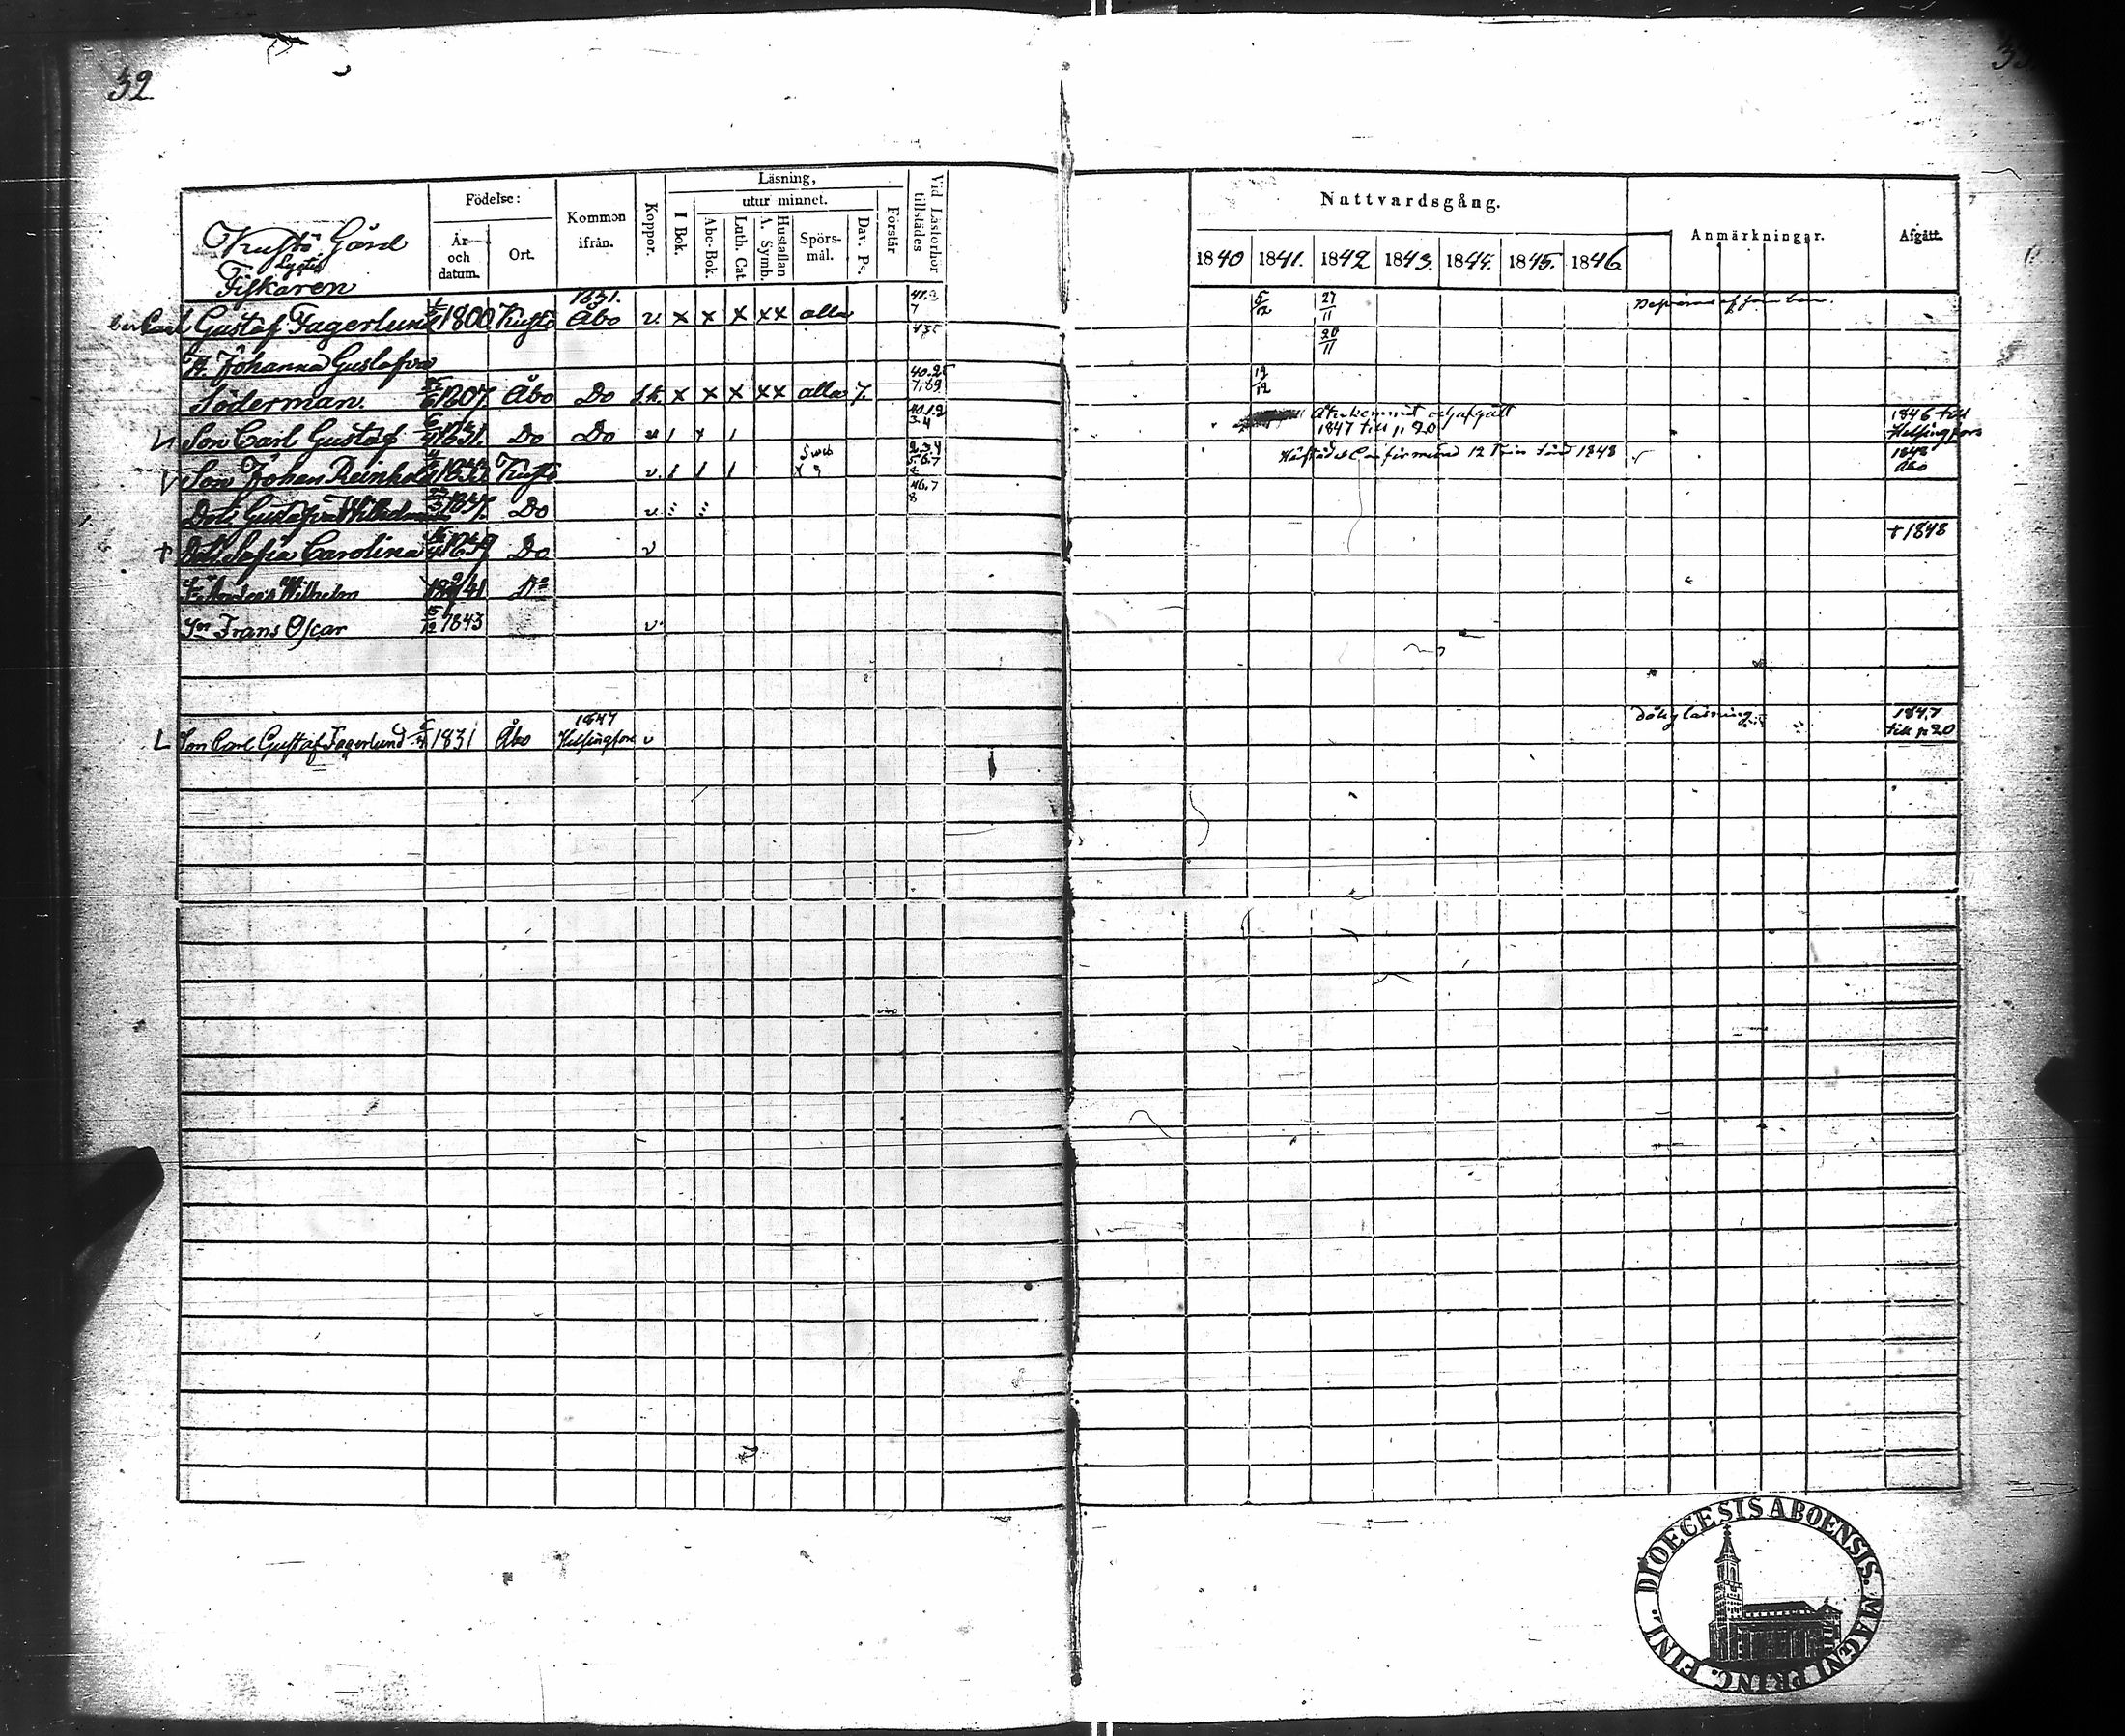 32
Kustö Gård
Fiskaren
Födelse:
År och datum.
Ort.
Kommen ifrån.
Koppor.
Läsning,
utur minnet.
I Bok.
Abc-Bok.
Luth. Cat
Hustaflan A. Symb.
Spörsmål.
Dav. Ps.
Förstår
Vid Läsförhör tillstädes
Nattvardsgång.
1840 1841. 1842 1843. 1844. 1845. 1846
Anmärkningar.
Afgått.
Carl Gustaf Fagerlund 1800 Kustö 1831. Åbo v. x x x xx alla 5/12 27/11
20/11
H. Johanna Gustafva
Söderman. 1807. Åbo Do x x x xx alla 7. 12/12
Son Carl Gustaf 1831. Do Do v Återkommit och afgått 1847 till p. 20 1846 till Helsingfors
Son Johan Reinhold 1833 Kustö v. 1848 Åbo
Dotr Gustafva Wilhelmina 1837. Do v.
† Dotr. Sofia Carolina 1839 Do v † 1848
Anders Wilhelm 1841 Do
Son Frans Oscar 15/12 1843 v.
Son Carl Gustaf Fagerlund 6/4 1831 Åbo 1847 Helsingfors v Dålig läsning 1847 till p. 20
DIOECESIS ABOENSIS. MAGNI PRINC. FINL.